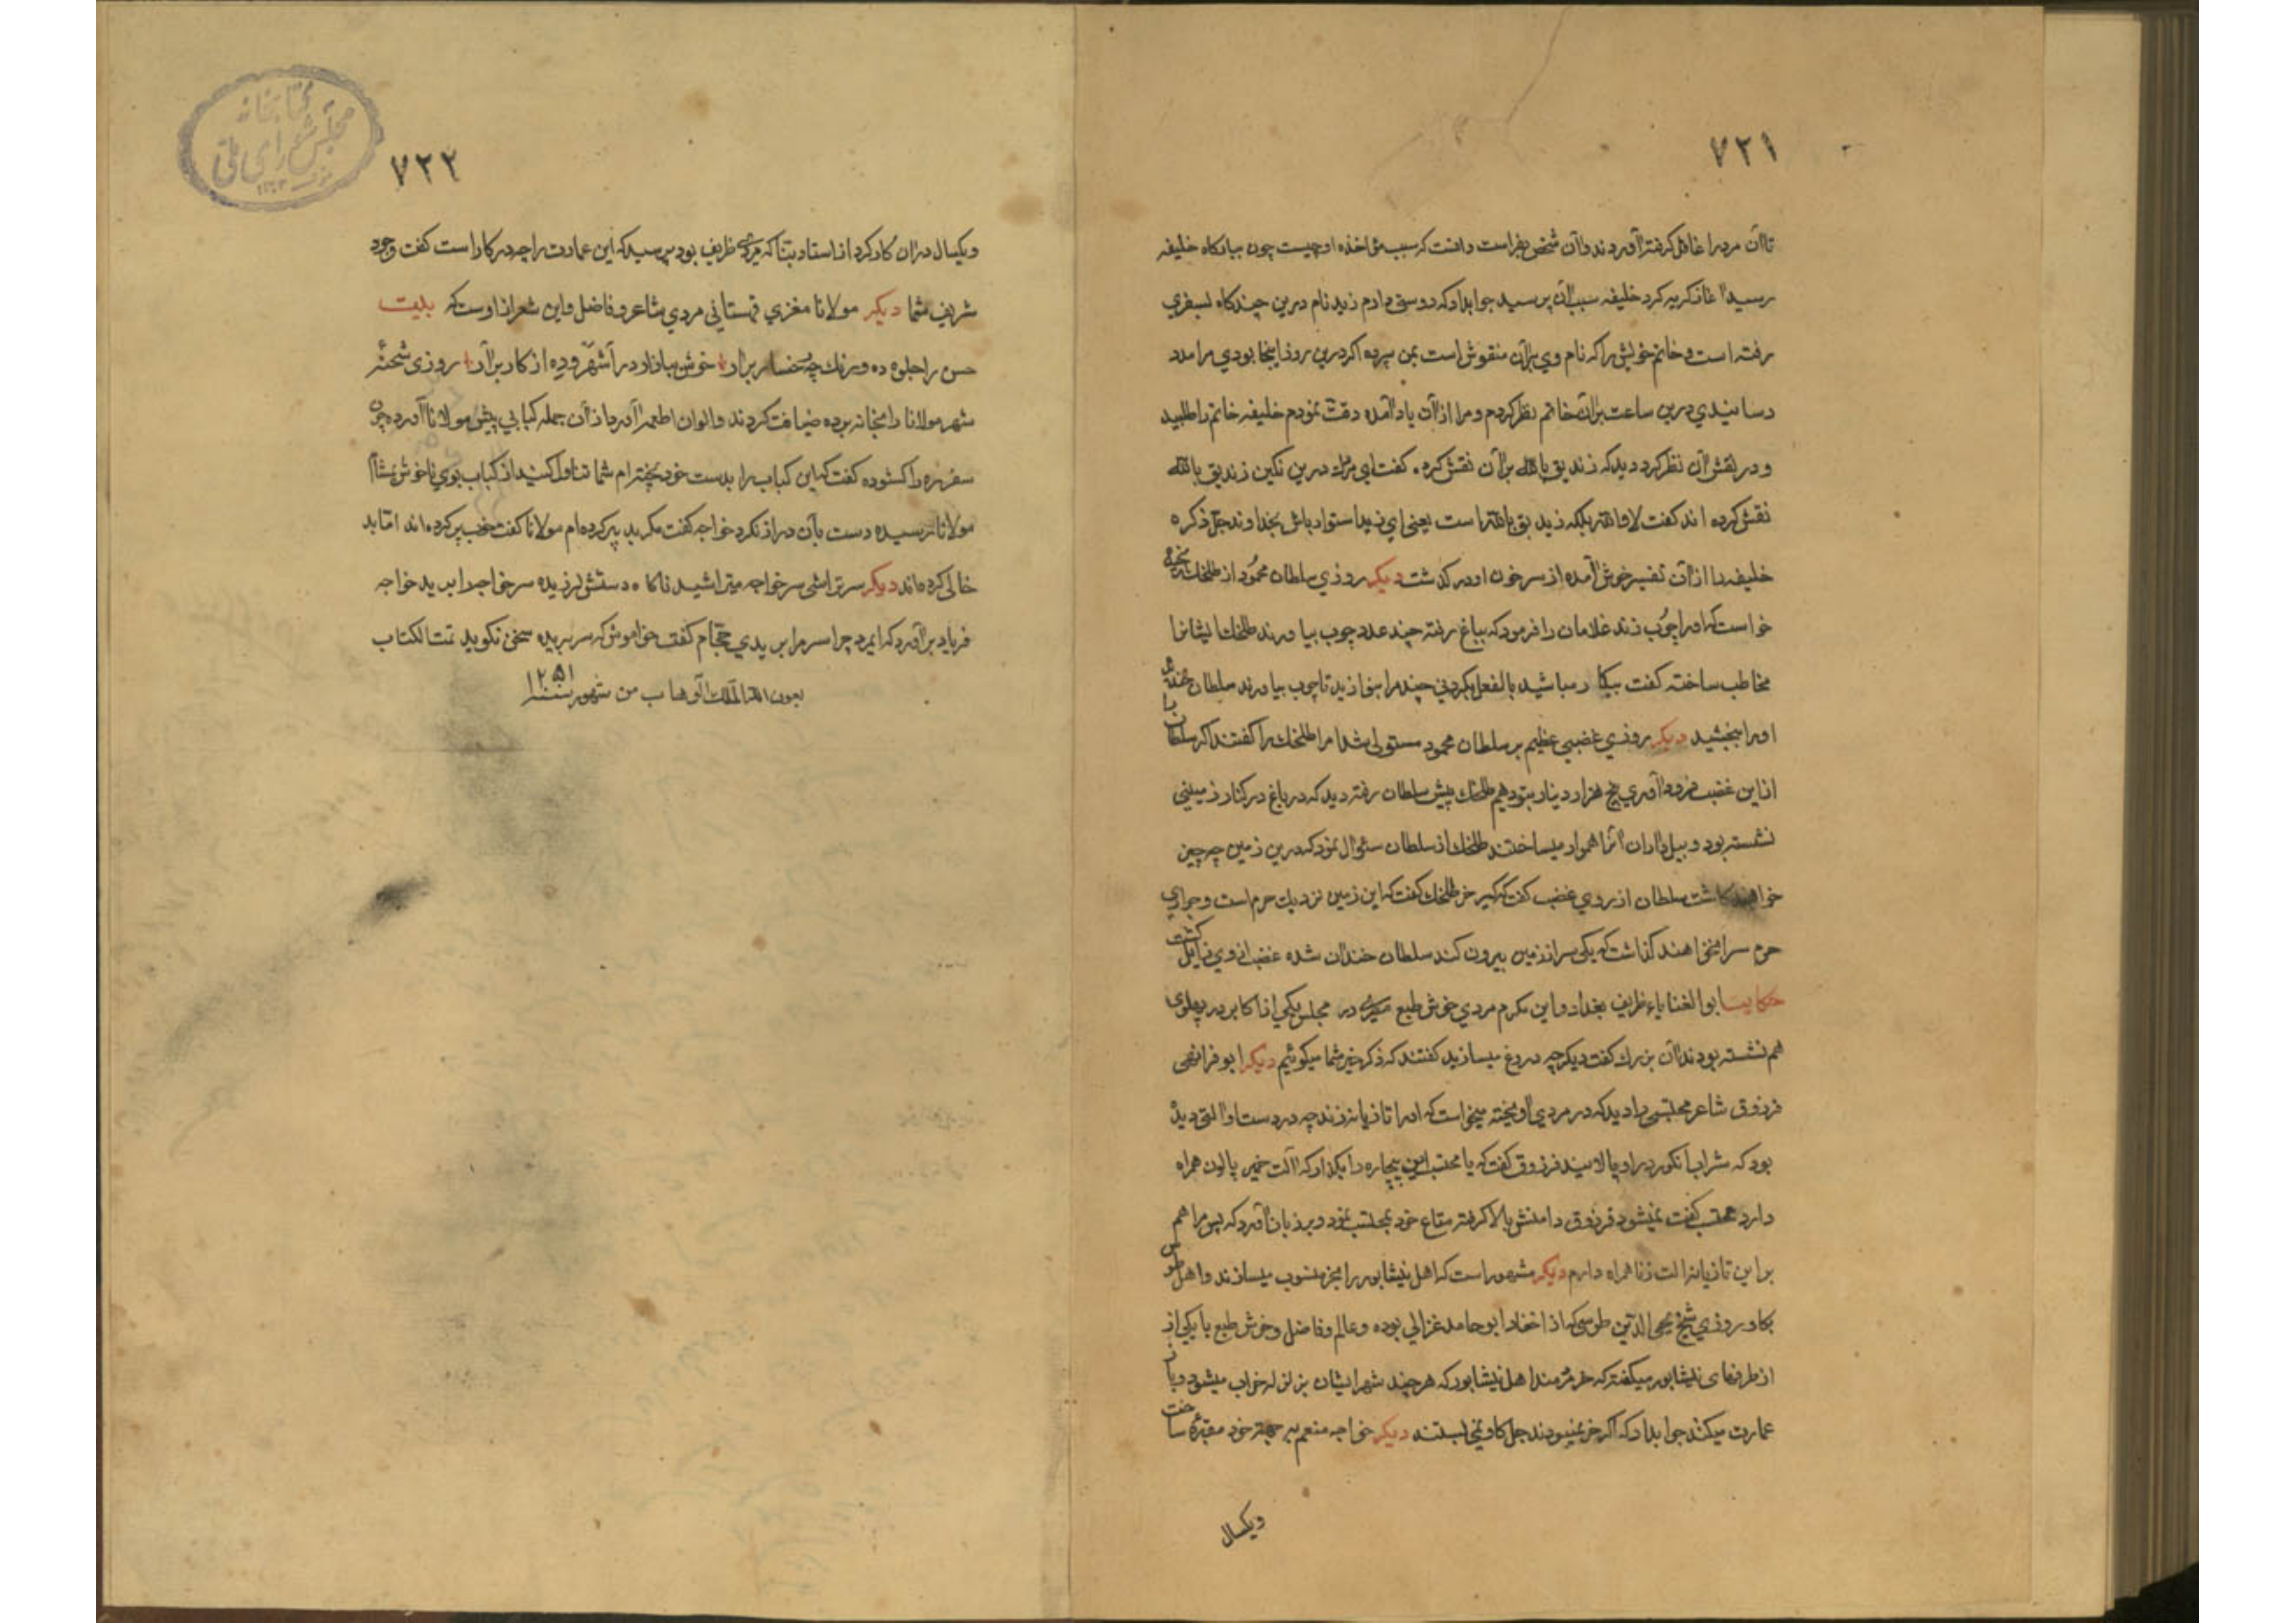 ۷۲۱
تا آن مرد را غافل گرفته آوردند و آن شخص بفراست دانست که سبب مؤاخذه او چیست چون ببارگاه خلیفه
رسید آغاز گریه کرد خلیفه سبب آن پرسید جواب داد که دوستی دارم زید نام درین چندگاه بسفری
رفته است و خاتم خویش را که نام وی بر آن منقوش است بمن سپرده اگر درین روز اینجا بودی مرا مدد
رسانیدی درین ساعت بر آن خاتم نظر کردم و مرا از آن یاد آمده رقت نمودم خلیفه خاتم را طلبید
و در نقش آن نظر کرد دید که زندیق بالله بر آن نقش کرده گفت ای مردک درین نگین زندیق بالله
نقش کرده اند گفت لا والله بلکه زید بق بالله است یعنی ای زید استوار باش بخداوند جل ذکره
خلیفه را از آن تفسیر خوش آمده از سر خون او در گذشت دیگر روزی سلطان محمود از طلخک رنجیده
خواست که او را چوب زند غلامان را فرمود که بباغ رفته چند عدد چوب بیاورند طلخک ایشانرا
مخاطب ساخته گفت بیکار مباشید بالفعل گردنی چند مرا بنوازید تا چوب بیاورند سلطان خندان
او را ببخشید دیگر روزی غضبی عظیم بر سلطان محمود مستولی شد امرا طلخک را گفتند اگر سلطان را
از این غضب فرود آوری پنج هزار دینار بتو دهیم طلخک پیش سلطان رفته دید که در باغ در کنار زمینی
نشسته بود و بیل داران آنرا هموار میساختند طلخک از سلطان سئوال نمود که درین زمین چه چیز
خواهند کاشت سلطان از روی غضب گفت که کیر خر طلخک گفت که این زمین نزدیک حرم است و جواری
حرم سرا نخواهند گذاشت که یکی سر از زمین بیرون کند سلطان خندان شده غضب از وی زایل گشت
حکایت ابو العناباء ظریف بغداد و ابن مکرم مردی خوش طبع در مجلس یکی از اکابر در پهلوی
هم نشسته بودند آن بزرگ گفت دیگر چه دروغ میسازید گفتند که ذکر خیر شما میگوئیم دیگر ابو فراس
فرزدق شاعر محتسبی را دید که در مردی آویخته میخواست که او را تازیانه زند چه در دست او آلتی دیده
بود که شراب انگور در او پالایند فرزدق گفت که یا محتسب این بیچاره را بگذار که آلت خمر پالون همراه
دارد محتسب گفت نمیشود فرزدق دامنش بالا گرفته متاع خود بمحتسب نمود و بر زبان آورد که پس مرا هم
بزن این تازیانه آلت زنا همراه دارم دیگر مشهور است که اهل نیشابور را بخر منسوب میسازند و اهل طوس
بگاو روزی شیخ محی الدین طوسی که از احفاد ابو حامد غزالی بوده و عالم و فاضل و خوش طبع با یکی از
از ظرفای نیشابور میگفته که خردمند اهل نیشابور که هر چند شهر ایشان بزلزله خراب میشود و باز
عمارت میکنند جواب داد که اگر خر نمیبودند جل گاو نمی بستند دیگر خواجه منعم بجهة خود مقبرۀ ساخت
ویکسال
۷۲۲
و یکسال در آن کار کرد از استاد بنا که مردی ظریف بود پرسید که این عمارت را چه در کار است گفت وجود
شریف شما دیگر مولانا مغزی قهستانی مردی شاعر و فاضل و این شعر از اوست که بیت
حسن را جلوه ده و رنگ چه رخسار برآر خوش بیا زاد در آ شهر و ده از کار برآر روزی شحنۀ
شهر مولانا را بخانه برده ضیافت کردند و الوان اطعمه آورد از آن جمله کبابی پیش مولانا آورده چون
سفره را گشوده گفت که این کباب را بدست خود پخته ام شما تناول کنید از کباب بوی ناخوش بمشام
مولانا رسیده دست بآن دراز نکرد خواجه گفت مگر بد پر کرده ام مولانا گفت خوب پر کرده اند اما بد
خالی کرده اند دیگر سرتراشی سر خواجه میتراشید ناگاه دستش لرزیده سر خواجه را برید خواجه
فریاد بر آورد که ایمرد چرا سر مرا بریدی حجام گفت خواموش که سر بریده سخن نگوید تمت الکتاب
بعون الله الملک الوهاب من شهور سنه ۱۲۵۱
کتابخانه
مجلس شورای ملی